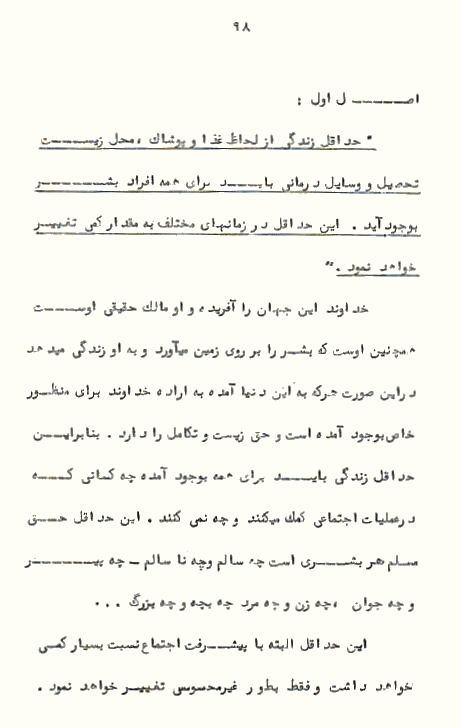 ۹۸
اصل اول :
" حداقل زندگی از لحاظ غذا و پوشاك ، محل زیست
تحصیل و وسایل درمانی باید برای همه افراد بشر
بوجود آید . این حداقل در زمانهای مختلف به مقدار کمی تغییر
خواهد نمود . "
خداوند این جهان را آفریده و او مالك حقیقی اوست
همچنین اوست که بشر را بر روی زمین میآورد و به او زندگی میدهد
دراین صورت هرکه به این دنیا آمده به اراده خداوند برای منظور
خاص بوجود آمده است و حق زیست و تکامل را دارد . بنابراین
حداقل زندگی باید برای همه بوجود آمده چه کسانی که
درعملیات اجتماعی کمك میکنند و چه نمی کنند . این حداقل حق
مسلم هر بشری است چه سالم وچه نا سالم ـ چه پیر
و چه جوان ، چه زن و چه مرد چه بچه و چه بزرگ ...
این حداقل البته با پیشرفت اجتماع نسبت بسیار کمی
خواهد داشت و فقط بطور غیرمحسوسی تغییر خواهد نمود .